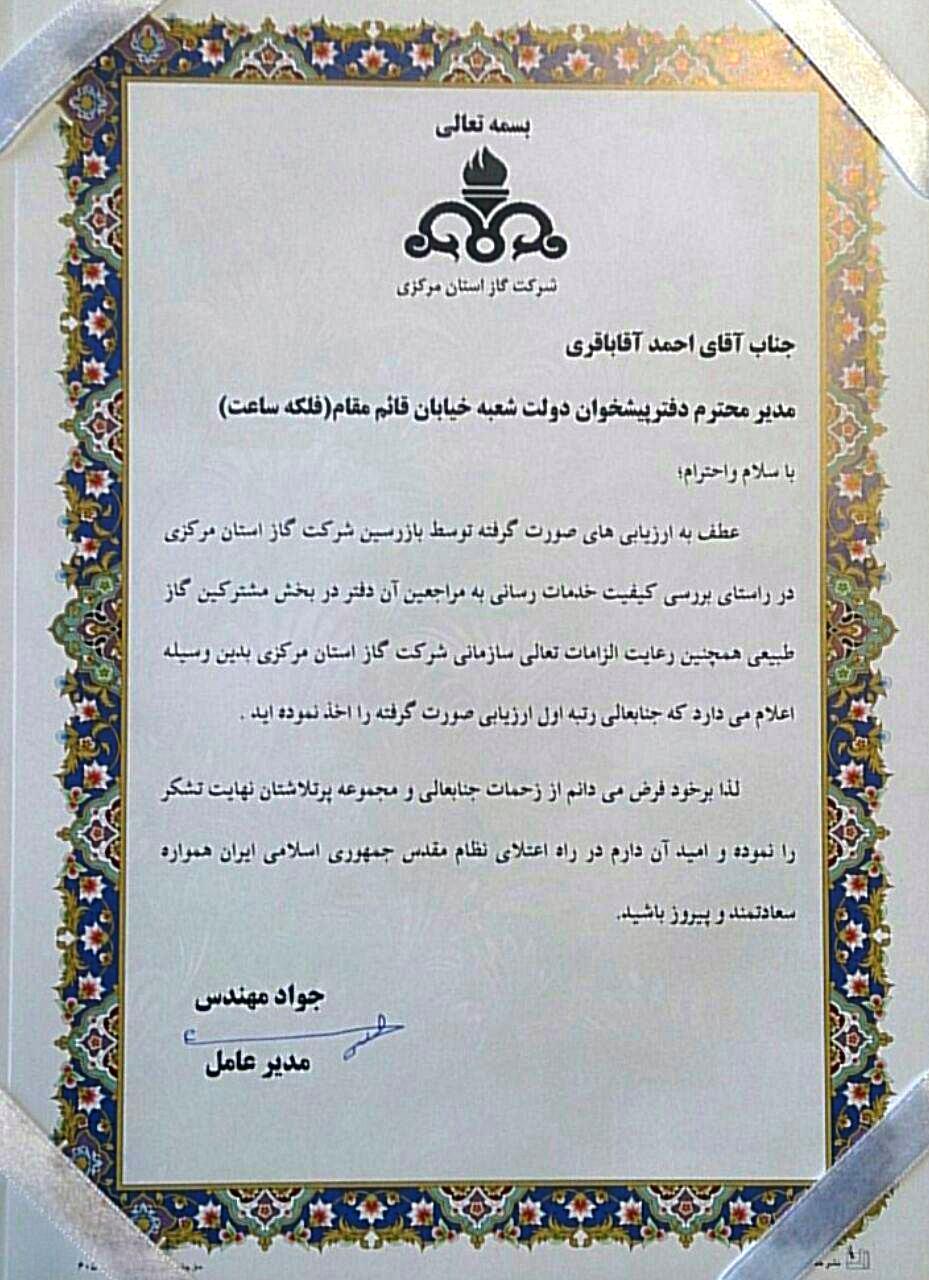 بسمه تعالی
شرکت گاز استان مرکزی
جناب آقای احمد آقاباقری
مدیر محترم دفترپیشخوان دولت شعبه خیابان قائم مقام(فلکه ساعت)
با سلام واحترام؛
عطف به ارزیابی های صورت گرفته توسط بازرسین شرکت گاز استان مرکزی
در راستای بررسی کیفیت خدمات رسانی به مراجعین آن دفتر در بخش مشترکین گاز
طبیعی همچنین رعایت الزامات تعالی سازمانی شرکت گاز استان مرکزی بدین وسیله
اعلام می دارد که جنابعالی رتبه اول ارزیابی صورت گرفته را اخذ نموده اید .
لذا برخود فرض می دانم از زحمات جنابعالی و مجموعه پرتلاشتان نهایت تشکر
را نموده و امید آن دارم در راه اعتلای نظام مقدس جمهوری اسلامی ایران همواره
سعادتمند و پیروز باشید.
جواد مهندس
مدیر عامل